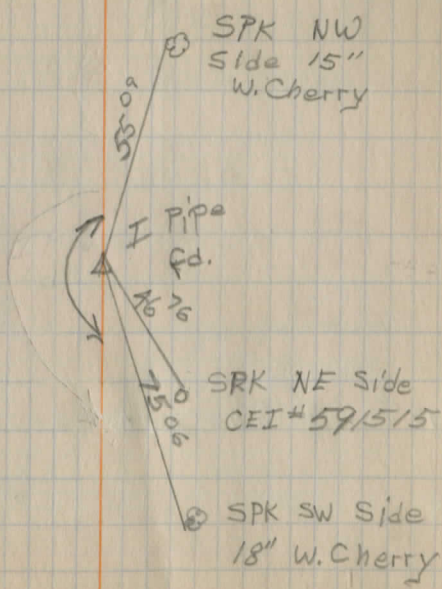 SPK NW
Side 15"
W. Cherry
55.09
I Pipe
fd.
46 76
SRK NE Side
CEI # 591515
75 06
SPK SW Side
18" W. Cherry